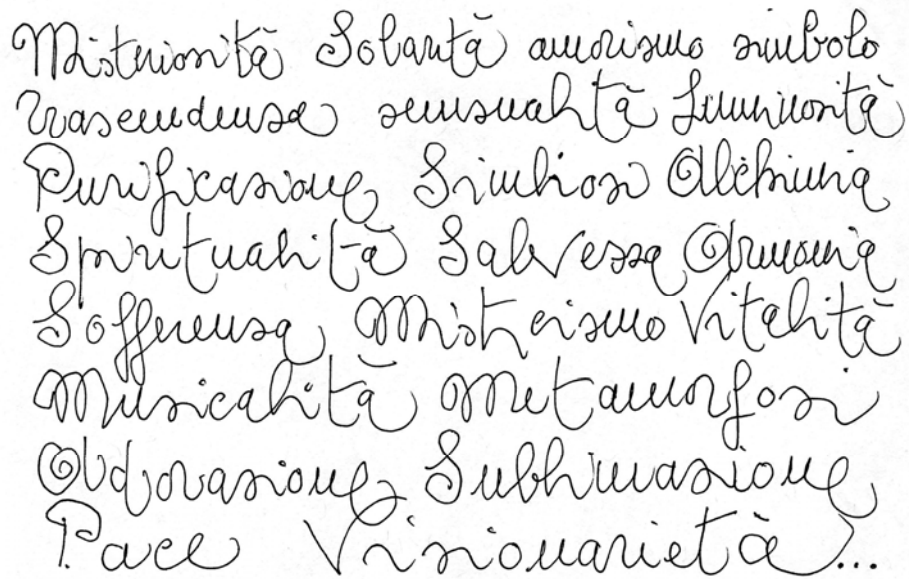 Misteriosità Solarità amorismo simbolo
Trascendenza sensualità Luminosità
Purificazione Simbiosi Alchimia
Spiritualità Salvezza Armonia
Sofferenza Misticismo Vitalità
Musicalità Metamorfosi
Adorazione Sublimazione
Pace Visionarietà...